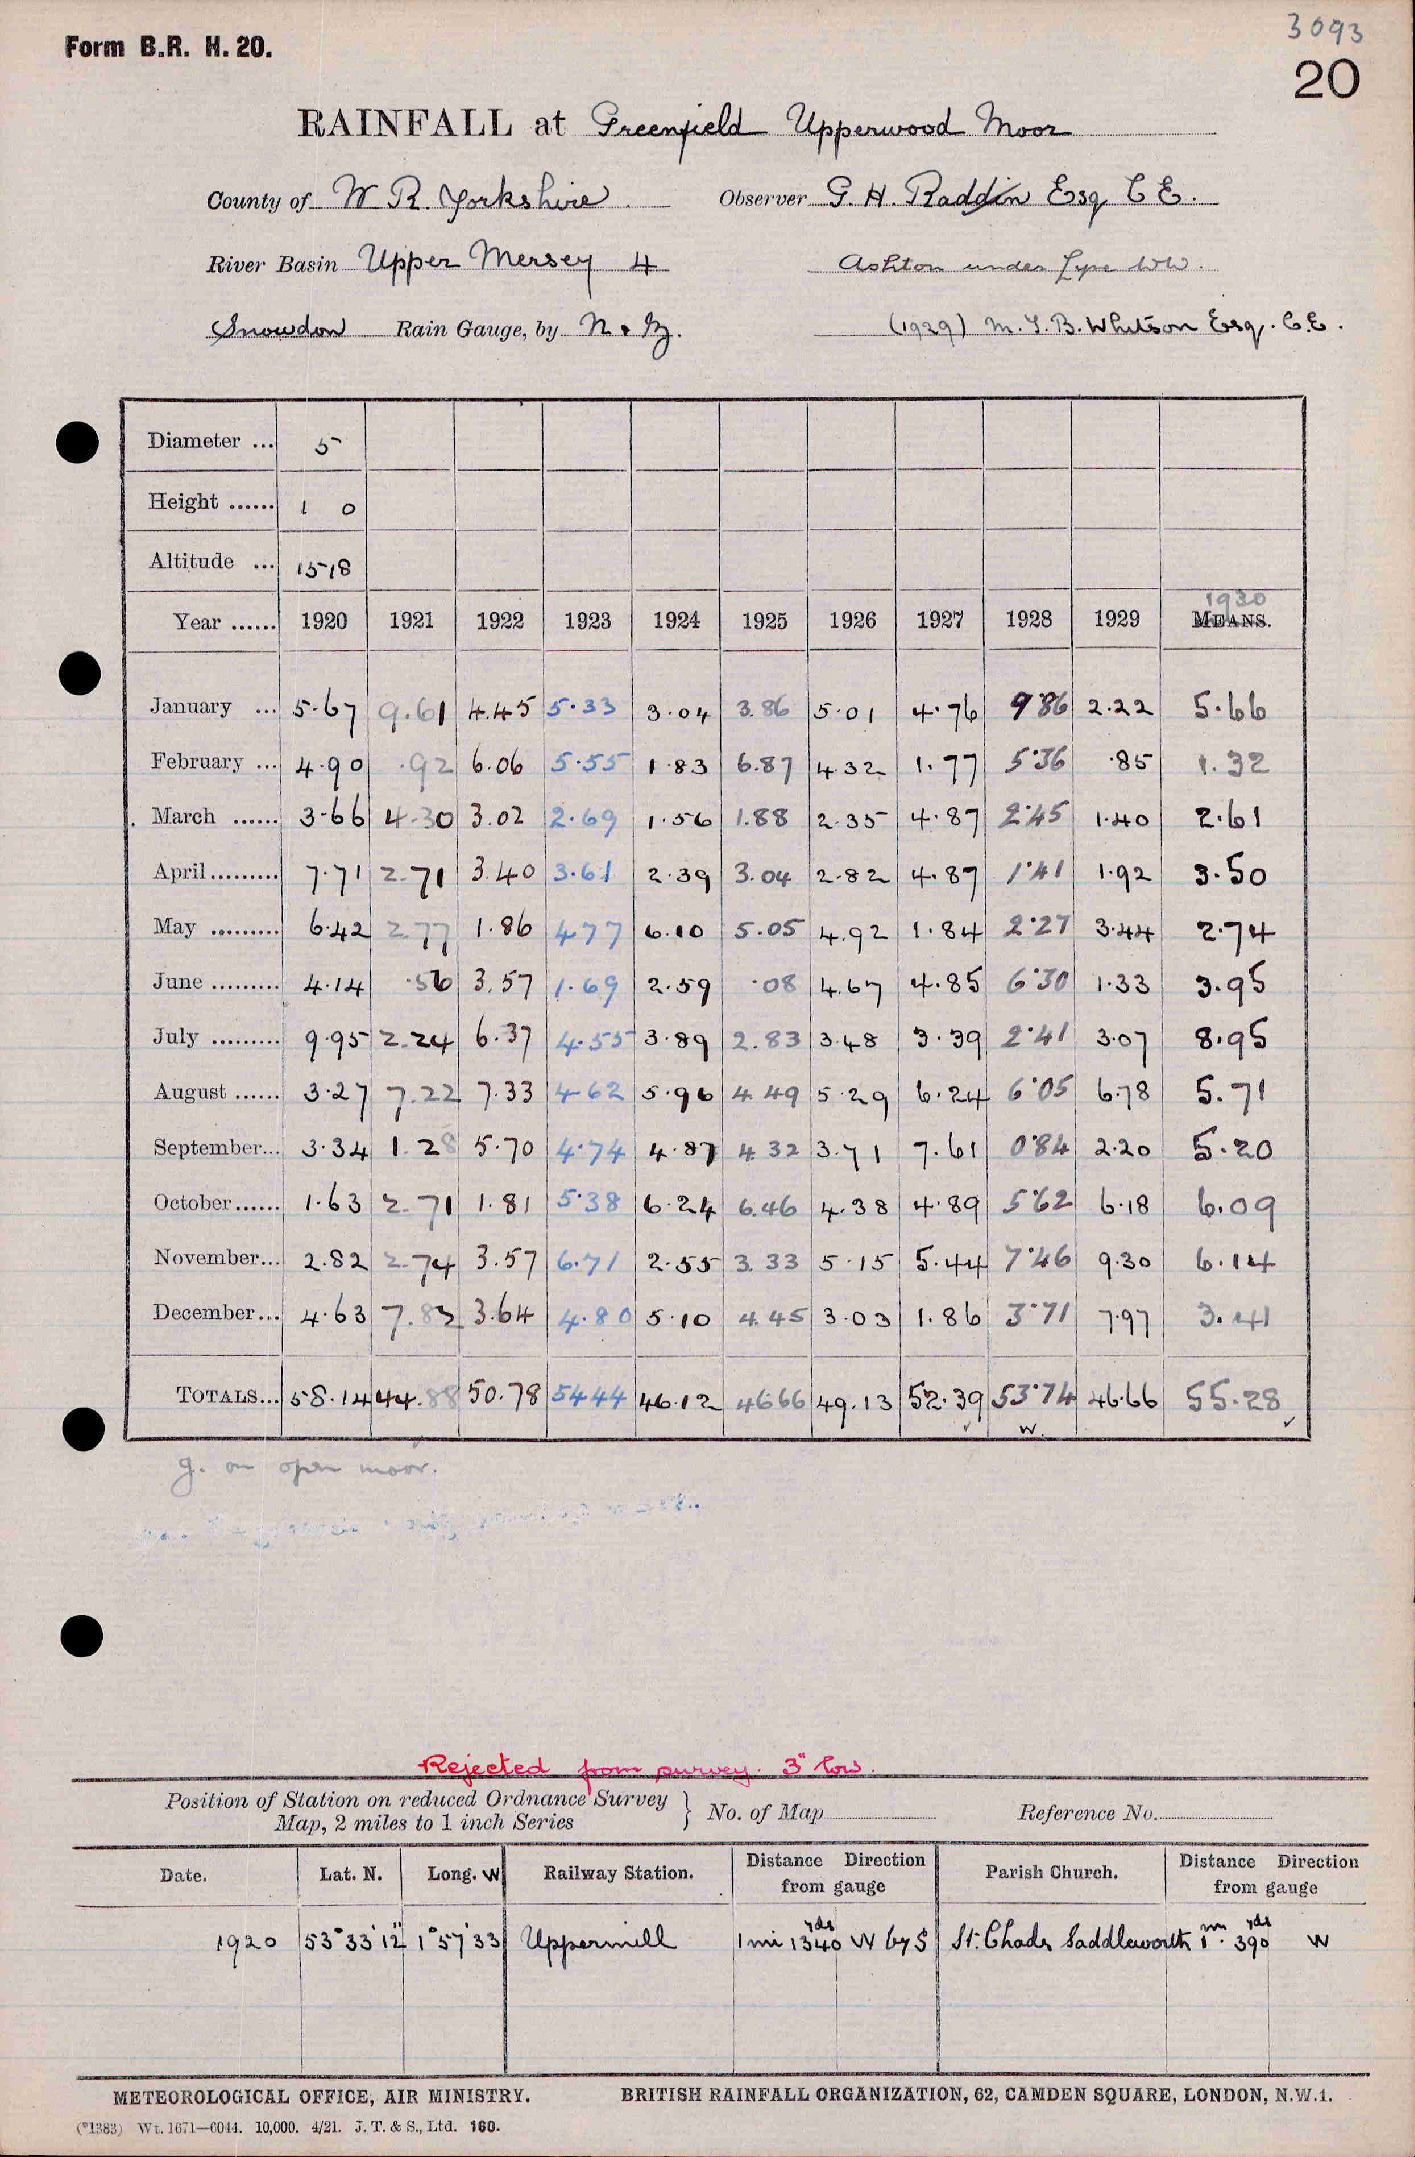 3093
Form B.R. H. 20.
20
RAINFALL at Greenfield Upperwood Moor
County of W R. Yorkshire Observer G. H. Raddin Esq C E.
River Basin Upper Mersey 4 Ashton under Lyne WW.
Snowdon Rain Gauge, by N & Z.
(1929) M. T. B. Whitson Esq. C.E.
Diameter ... 5
Height ...... 1 0
Altitude ... 1518
1930
Year ...... 1920 1921 1922 1923 1924 1925 1926 1927 1928 1929 MEANS.
January ... 5.67 9.61 4.45 5.33 3.04 3.86 5.01 4.76 9.86 2.22 5.66
February ... 4.90 .92 6.06 5.55 1.83 6.87 4.32 1.77 5.36 .85 1.32
March ...... 3.66 4.30 3.02 2.69 1.56 1.88 2.35 4.87 2.45 1.40 2.61
April ......... 7.71 2.71 3.40 3.61 2.39 3.04 2.82 4.87 1.41 1.92 3.50
May ......... 6.42 2.77 1.86 4.77 6.10 5.05 4.92 1.84 2.27 3.44 2.74
June ......... 4.14 .56 3.57 1.69 2.59 .08 4.67 4.85 6.30 1.33 3.95
July ......... 9.95 2.24 6.37 4.55 3.89 2.83 3.48 3.39 2.41 3.07 8.95
August ...... 3.27 7.22 7.33 4.62 5.96 4.49 5.29 6.24 6.05 6.78 5.71
September... 3.34 1.28 5.70 4.74 4.87 4.32 3.71 7.61 0.84 2.20 5.20
October...... 1.63 2.71 1.81 5.38 6.24 6.46 4.38 4.89 5.62 6.18 6.09
November... 2.82 2.74 3.57 6.71 2.55 3.33 5.15 5.44 7.46 9.30 6.14
December... 4.63 7.82 3.64 4.80 5.10 4.45 3.03 1.86 3.71 7.97 3.41
TOTALS... 58.14 44.88 50.78 54.44 46.12 46.66 49.13 52.39 53.74 46.66 55.28
W.
g. on open moor.
Rejected from survey. 3" low.
Position of Station on reduced Ordnance Survey Map, 2 miles to 1 inch Series } No. of Map Reference No.
Date. Lat. N. Long. W Railway Station. Distance Direction from gauge Parish Church. Distance Direction from gauge
1920 53° 33' 12" 1° 57' 33 Uppermill 1 mi 1340 yds W by S St. Chads Saddleworth 1 m. 390 yds W
METEOROLOGICAL OFFICE, AIR MINISTRY. BRITISH RAINFALL ORGANIZATION, 62, CAMDEN SQUARE, LONDON, N.W.1.
(*1383) Wt. 1671—6044. 10,000. 4/21. J. T. & S., Ltd. 160.